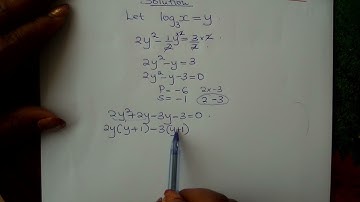 Solution
Let log₃x = y
2y² - 1/2 y × 2 = 3/2 × 2 .
2y² - y = 3
2y² - y - 3 = 0
P = -6 2 × -3
S = -1 2 - 3
2y² + 2y - 3y - 3 = 0 .
2y(y+1) - 3(y+1)